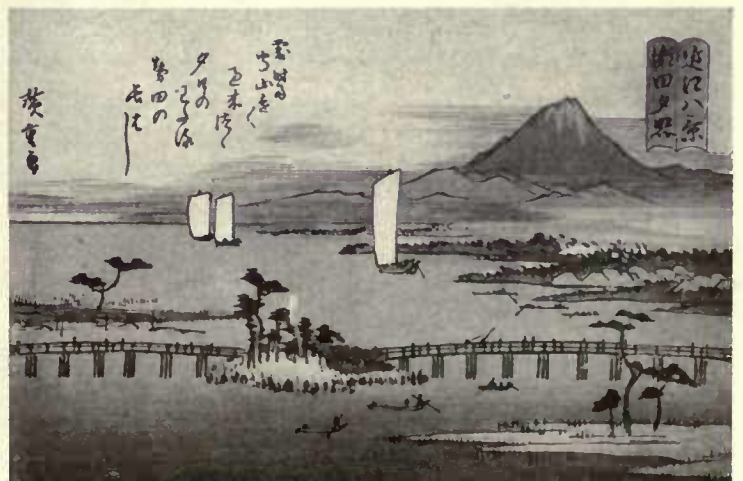 近江八景
瀬田夕照
露時雨
守山遠く
過来つゝ
夕日の
わたる
勢田の
長はし
廣重画